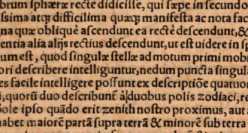 brum sphæræ recte didicisse, qui sæpe in secundo
issima atq; difficilima quæq; manifesta ac nota fo
gna quæ oblique ascendunt ea recte descendunt, &
entia alia alijs rectius descendunt, ut est uidere in
um est, quod singulæ stellæ ad motum primi mobi
ori describere intelliguntur, nedum puncta singula
es facile intelligere possunt ex descriptiõe quatuor
i, quorũ duo describunt à duobus polis zodiaci, re
ole ipso quãdo erit zenith nostro proximus, aut
habet maiorẽ partẽ supra terrã & minorẽ sub terra